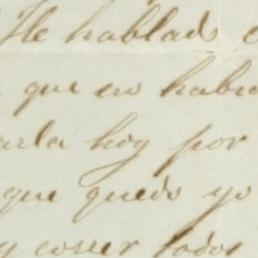 He hablado
que no habia
arla hoy por
que quedo yo
y correr todos